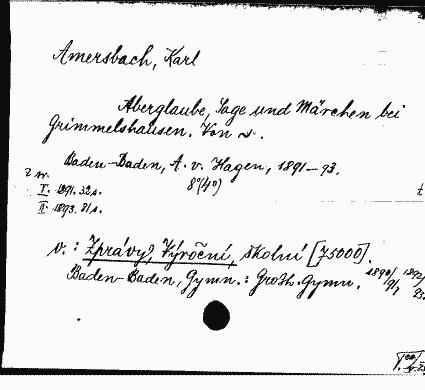 Amersbach, Karl
Aberglaube, Sage und Märchen bei
Grimmelshausen. Von
Baden-Baden, A. v. Hagen, 1891-93.
8°(4°)
2 sv.
I. 1891. 32 s.
II. 1893. 81 s.
v.: Zprávy, Výroční, školní [75000].
Baden-Baden, Gymn.: Groth. Gymn. 1890/